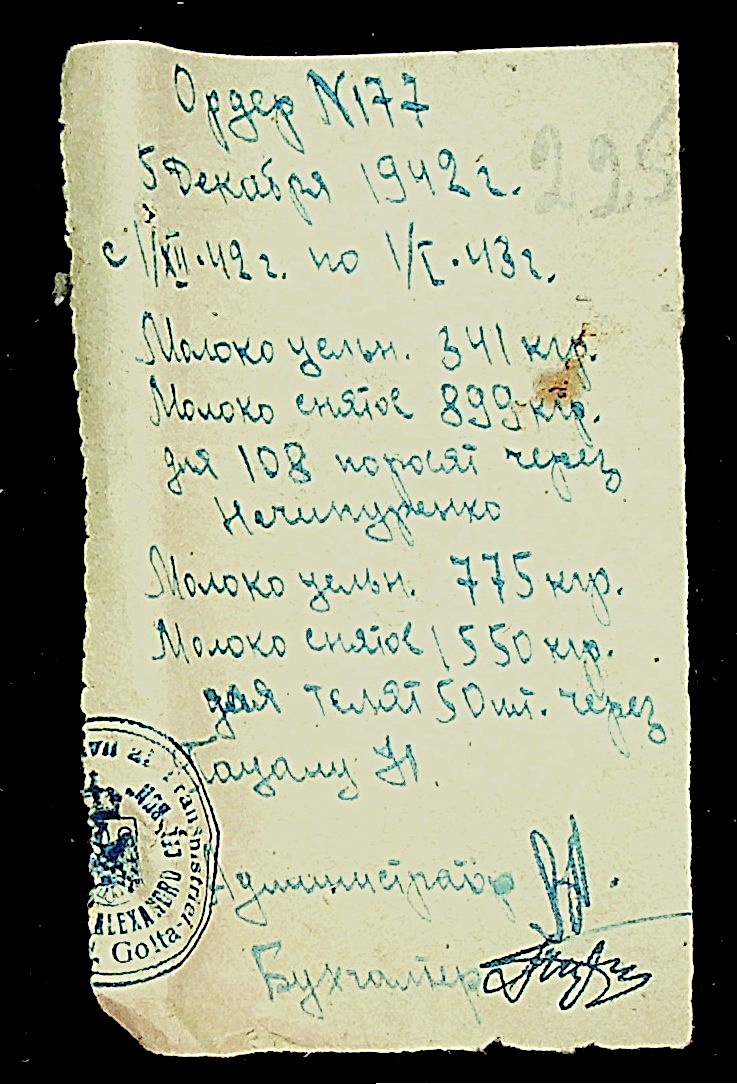 Ордер N177
225
5 Декабря 1942 г.
с 1/XII.42 г. по 1/I.43 г.
Молоко цельн. 341 кгр.
Молоко снятое 899 кгр.
для 108 поросят через
Нечипуренко
Молоко цельн. 775 кгр.
Молоко снятое 1550 кгр.
для телят 50 шт. через
Н.
Администратор
Бухгалтер
Transnistriei
ALEXANDRO
Golta